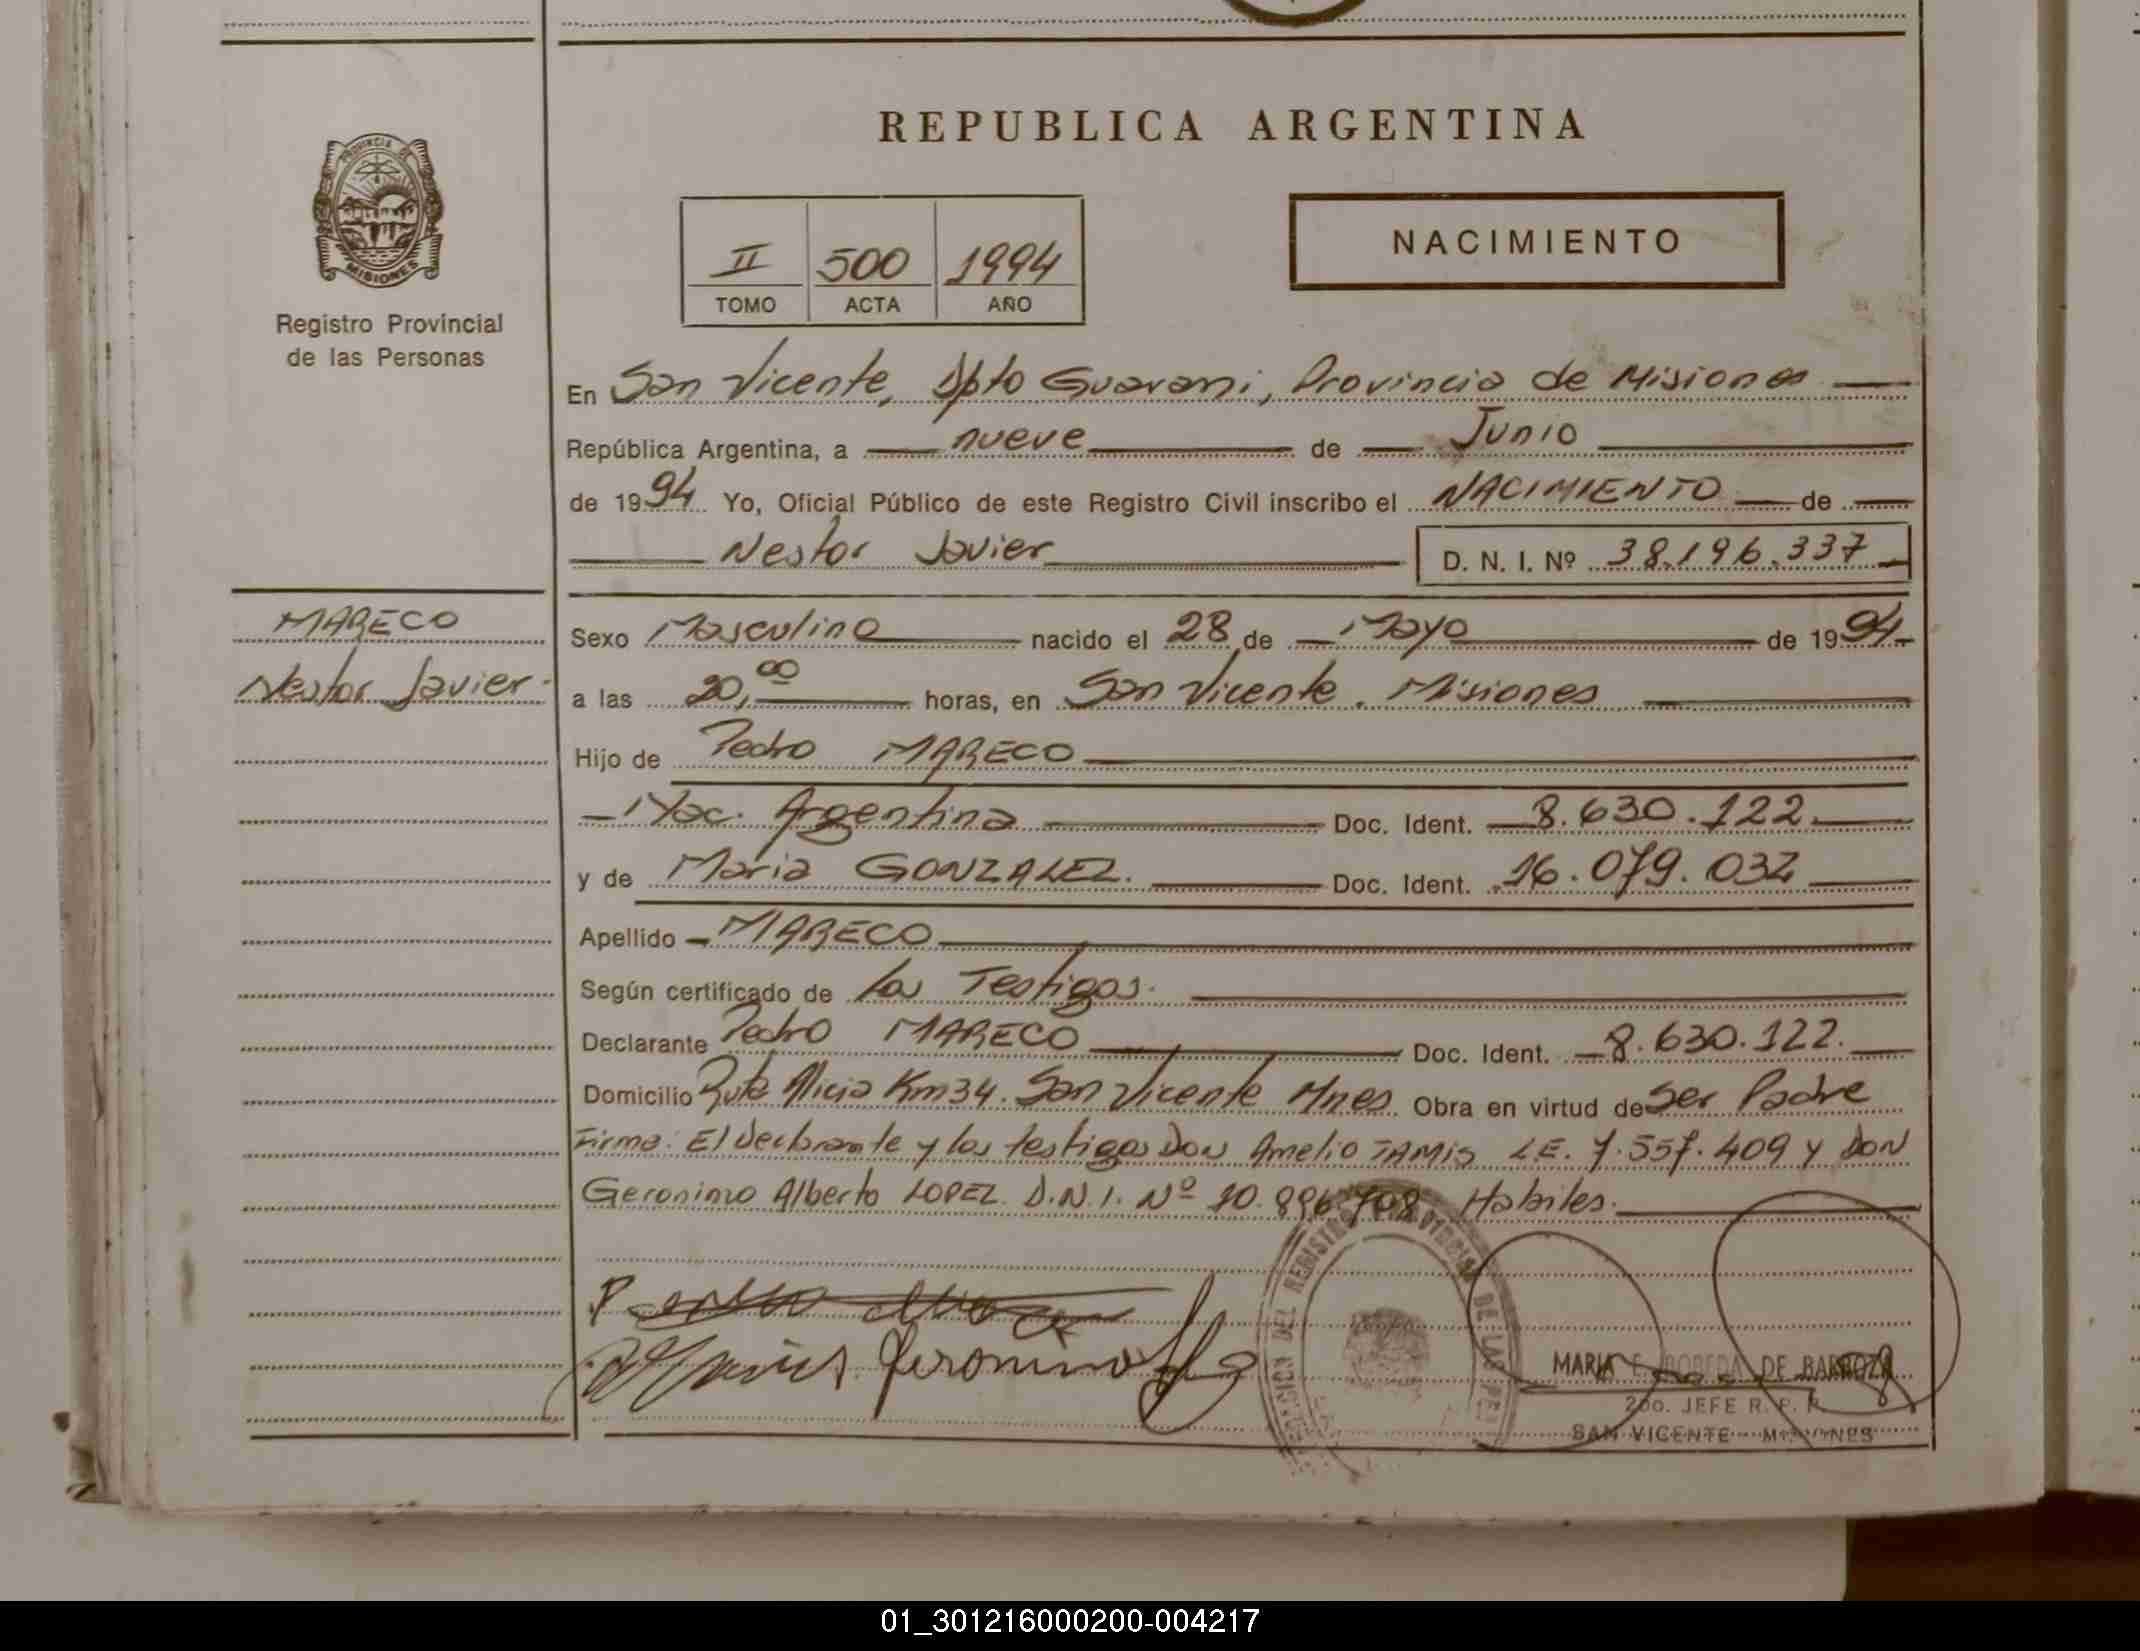 REPUBLICA ARGENTINA
PROVINCIA DE
MISIONES
Registro Provincial
de las Personas
II 500 1994
TOMO ACTA AÑO
NACIMIENTO
En San Vicente, Dpto Guarani, Provincia de Misiones
República Argentina, a nueve de Junio
de 1994 Yo, Oficial Público de este Registro Civil inscribo el NACIMIENTO de
Nestor Javier D. N. I. Nº 38.196.337
MARECO
Nestor Javier
Sexo Masculino nacido el 28 de Mayo de 1994
a las 20,00 horas, en San Vicente. Misiones
Hijo de Pedro MARECO
Nac. Argentina Doc. Ident. 8.630.122
y de Maria GONZALEZ. Doc. Ident. 16.079.032
Apellido MARECO
Según certificado de los Testigos.
Declarante Pedro MARECO Doc. Ident. 8.630.122.
Domicilio Ruta Alicia Km34. San Vicente Mnes Obra en virtud de Ser Padre
Firma: El declarante y los testigos Don Amelio TAMIS L.E. 7.557.409 y DON
Geronimo Alberto LOPEZ. D.N.I. Nº 10.896.708 Habiles.
Geronimo
MARIA E. DE BARBOZA
2do. JEFE R. P. P.
SAN VICENTE MISIONES
01_301216000200-004217